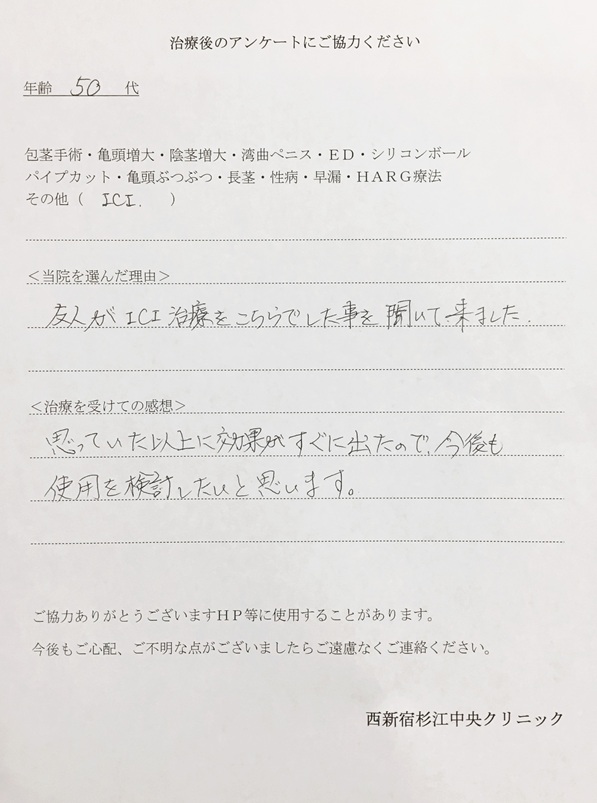 治療後のアンケートにご協力ください
年齢 50 代
包茎手術・亀頭増大・陰茎増大・湾曲ペニス・ED・シリコンボール
パイプカット・亀頭ぶつぶつ・長茎・性病・早漏・HARG療法
その他（ ICI. ）
＜当院を選んだ理由＞
友人がICI治療をこちらでした事を聞いて来ました.
＜治療を受けての感想＞
思っていた以上に効果がすぐに出たので、今後も
使用を検討したいと思います。
ご協力ありがとうございますHP等に使用することがあります。
今後もご心配、ご不明な点がございましたらご遠慮なくご連絡ください。
西新宿杉江中央クリニック